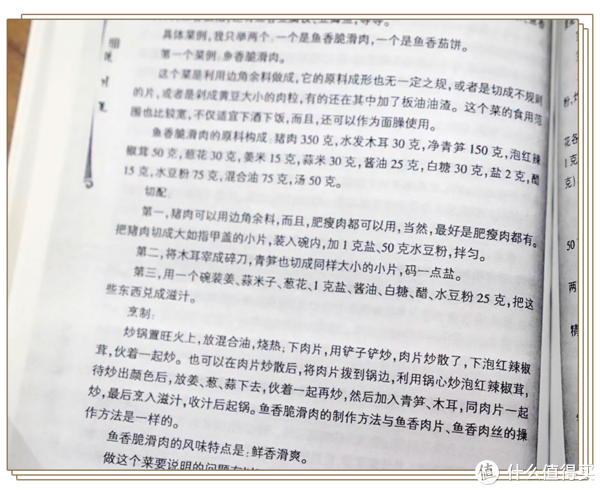 具体菜例，我只举两个：一个是鱼香脆滑肉，一个是鱼香茄饼。
第一个菜例：鱼香脆滑肉。
这个菜是利用边角余料做成，它的原料成形也无一定之规，或者是切成不规则
的片，或者是剁成黄豆大小的肉粒，有的还在其中加了板油油渣。这个菜的食用范
围也比较宽，不仅适宜下酒下饭，而且，还可以作为面臊使用。
鱼香脆滑肉的原料构成：猪肉 350 克，水发木耳 30 克，净青笋 150 克，泡红辣
椒茸 50 克，葱花 30 克，姜米 15 克，蒜米 30 克，酱油 25 克，白糖 30 克，盐 2 克，醋
15 克，水豆粉 75 克，混合油 75 克，汤 50 克。
切配：
第一，猪肉可以用边角余料，而且，肥瘦肉都可以用，当然，最好是肥瘦肉都有。
把猪肉切成大如指甲盖的小片，装入碗内，加 1 克盐、50 克水豆粉，拌匀。
第二，将木耳宰成碎刀，青笋也切成同样大小的小片，码一点盐。
第三，用一个碗装姜、蒜米子、葱花、1 克盐、酱油、白糖、醋、水豆粉 25 克，把这
些东西兑成滋汁。
烹制：
炒锅置旺火上，放混合油，烧热；下肉片，用铲子铲炒，肉片炒散了，下泡红辣椒
茸，伙着一起炒。也可以在肉片炒散后，将肉片拨到锅边，利用锅心炒泡红辣椒茸，
待炒出颜色后，放姜、葱、蒜下去，伙着一起再炒，然后加入青笋、木耳，同肉片一起
炒，最后烹入滋汁，收汁后起锅。鱼香脆滑肉的制作方法与鱼香肉片、鱼香肉丝的操
作方法是一样的。
鱼香脆滑肉的风味特点是：鲜香滑爽。
做这个菜要说明的问题
粉，
花各
1 克
克）
50
两
精
值 什么值得买